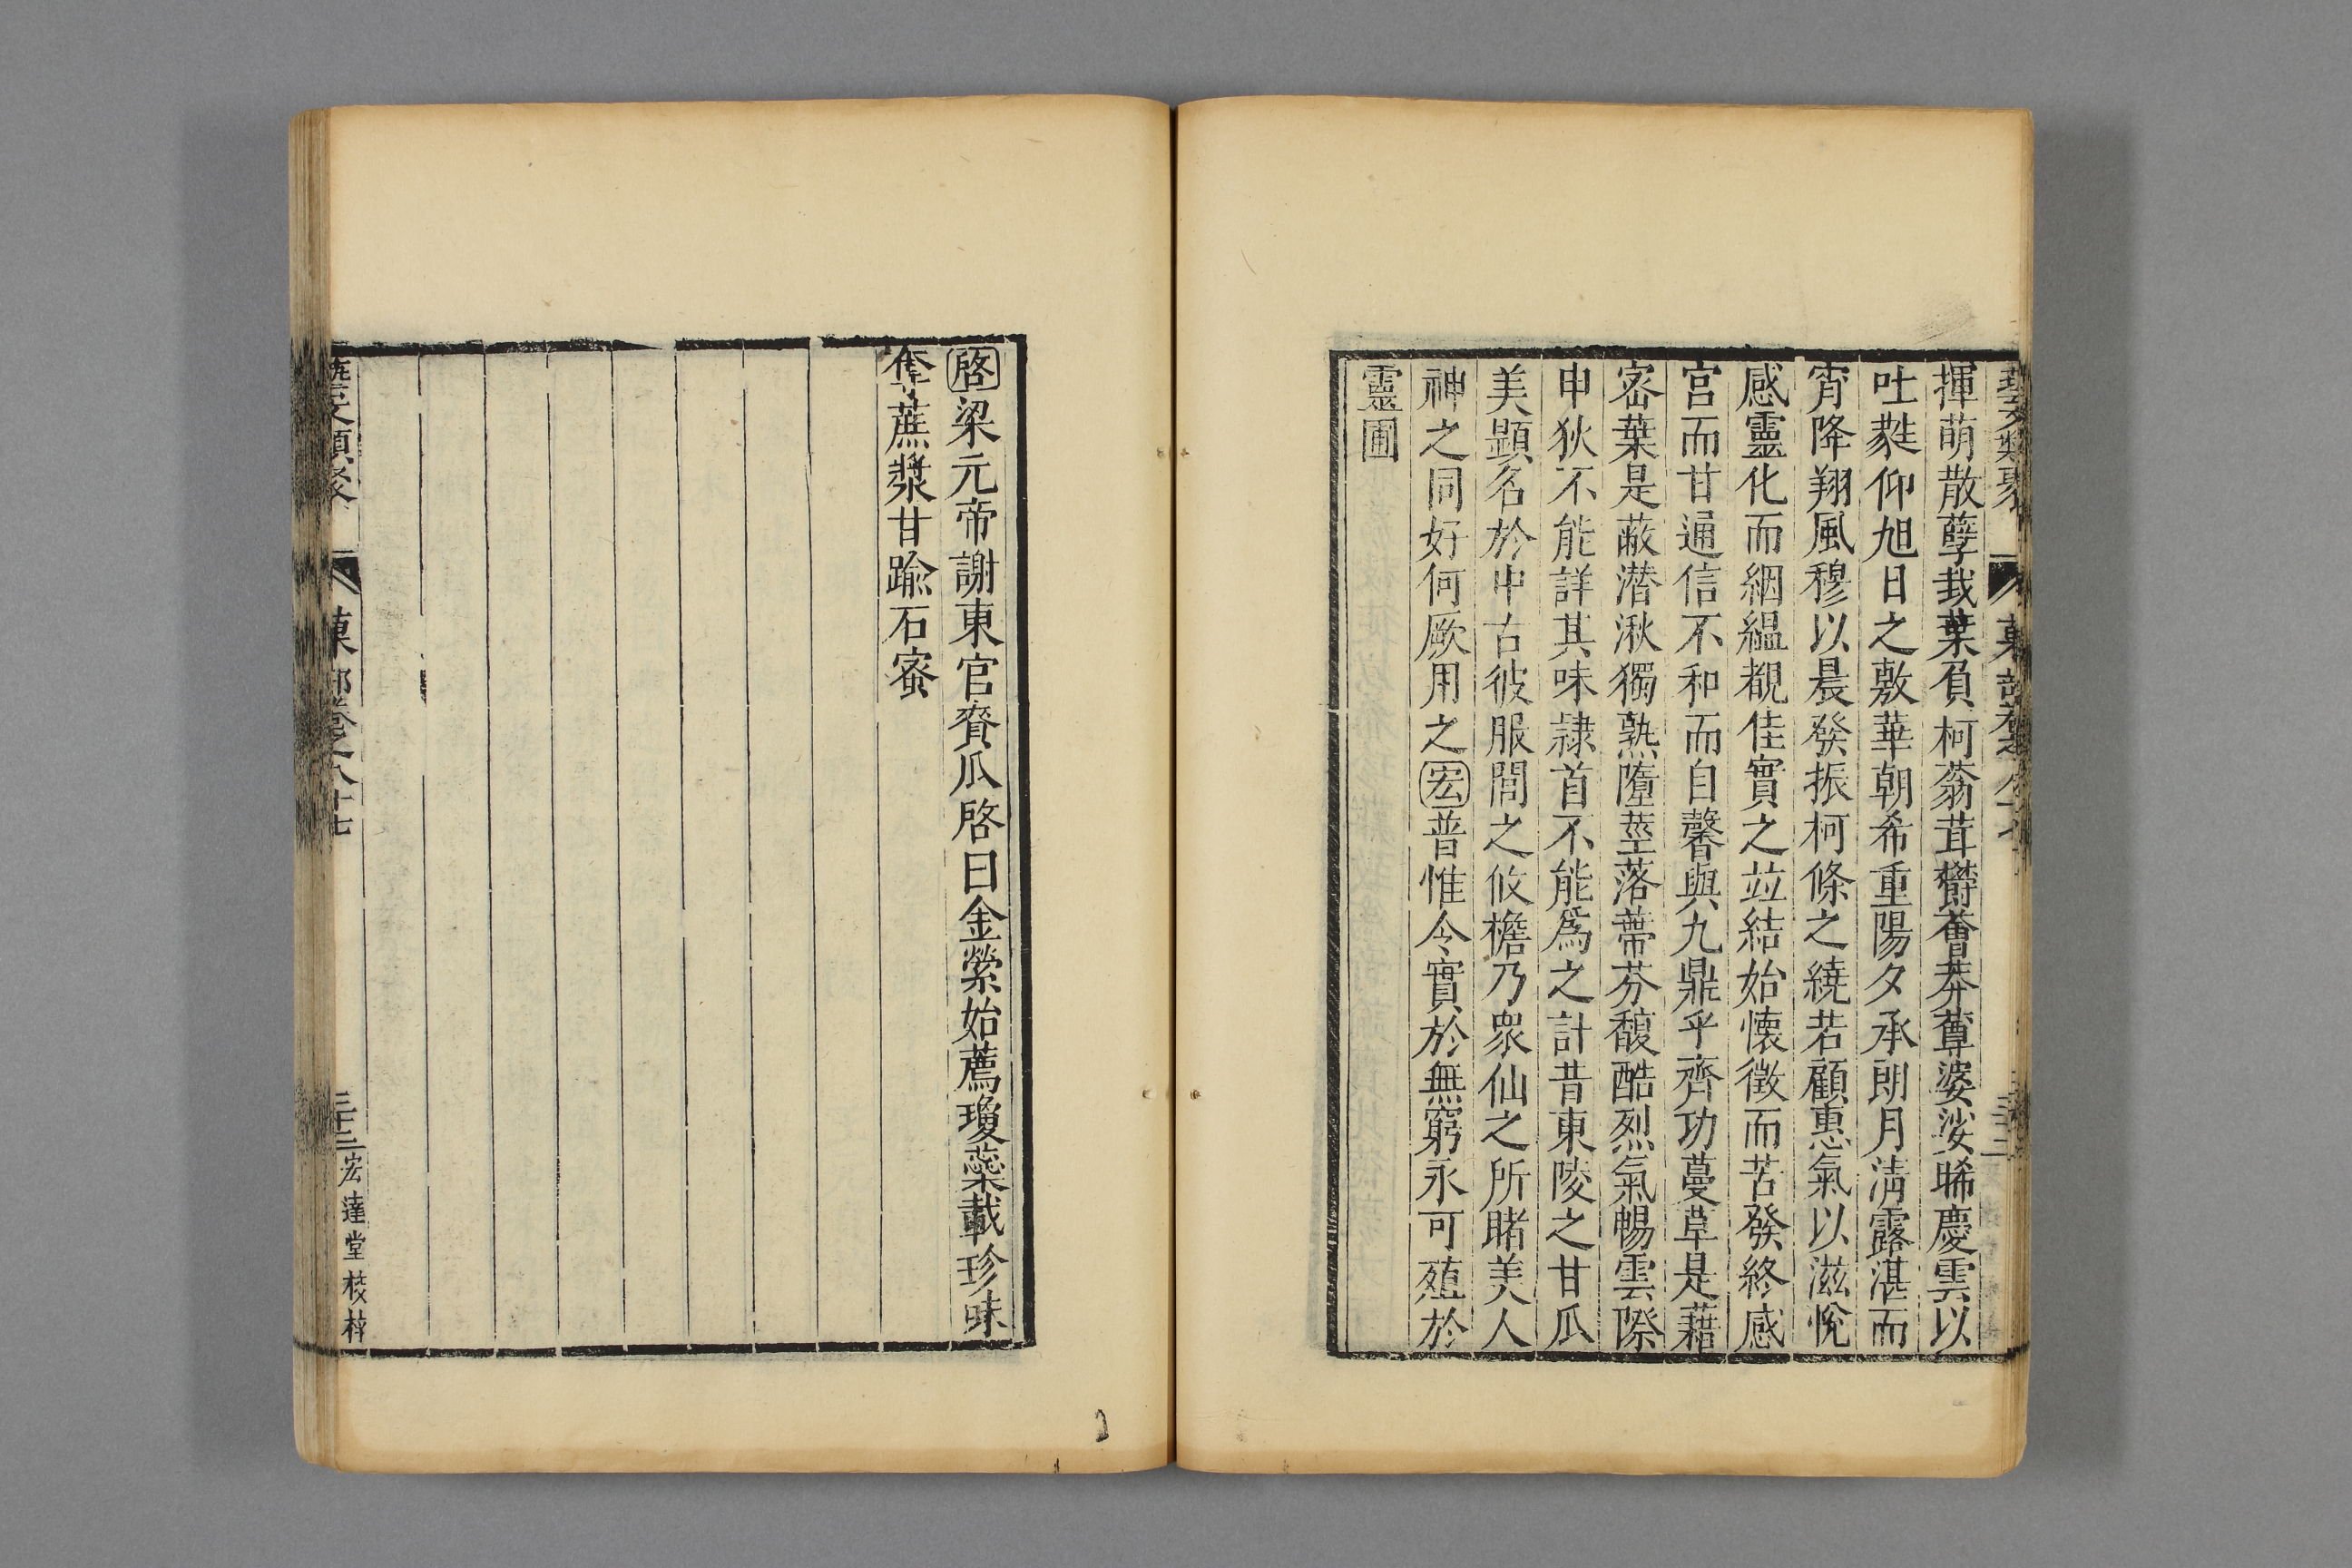 藝文類聚　菓部卷之八十七
揮萌散孽我葉負柯蓊茸欝薈莽蕁婆娑晞慶雲以
吐蕤仰旭日之敷華朝希重陽夕承朗月淸露湛而
宵降翔風穆以晨發振柯條之繞若顧惠氣以滋悅
感靈化而絪縕覩佳實之竝結始懷徵而苦發終感
宮而甘通信不和而自馨與九鼎乎齊功蔓草是藉
密葉是蔽潛湫獨熟隱莖落蔕芬馥酷烈氣暢雲際
申狄不能詳其味隸首不能爲之計昔東陵之甘瓜
美顯名於中古彼服閭之攸檐乃衆仙之所睹美人
神之同好何厥用之宏普惟令實於無窮永可殖於
靈圃
啓梁元帝謝東宮賚瓜啓曰金縈始薦瓊蘂載珍味
奪蔗漿甘踰石蜜
藝文類聚　菓部卷之八十七　三十二　宏達堂校梓